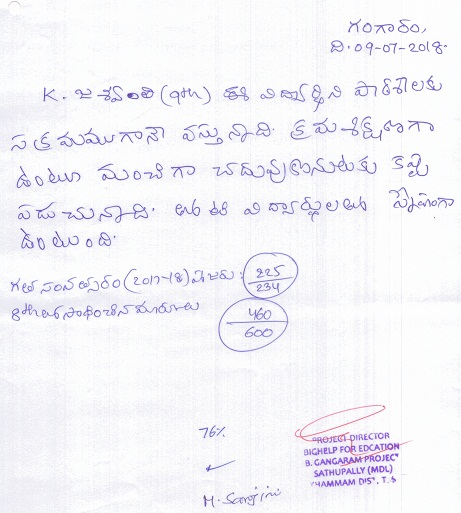 గంగారం,
ది. 09-07-2018.
K. జశ్వంతి (9th) ఈ విద్యార్థిని పాఠశాలకు
సక్రమముగానే వస్తున్నాది. క్రమశిక్షణగా
ఉంటూ మంచిగా చదువుకొనుటకు కష్ట
పడుచున్నాది. తోటి విద్యార్థులతో స్నేహంగా
ఉంటుంది.
గత సంవత్సరం (2017-18) హాజరు: 225/234
8th లో సాధించిన మార్కులు 460/600
76%
M. Sarojini
PROJECT DIRECTOR
BIGHELP FOR EDCATION
B. GANGARAM PROJECT
SATHUPALLY (MDL)
KHAMMAM DIST, T.S